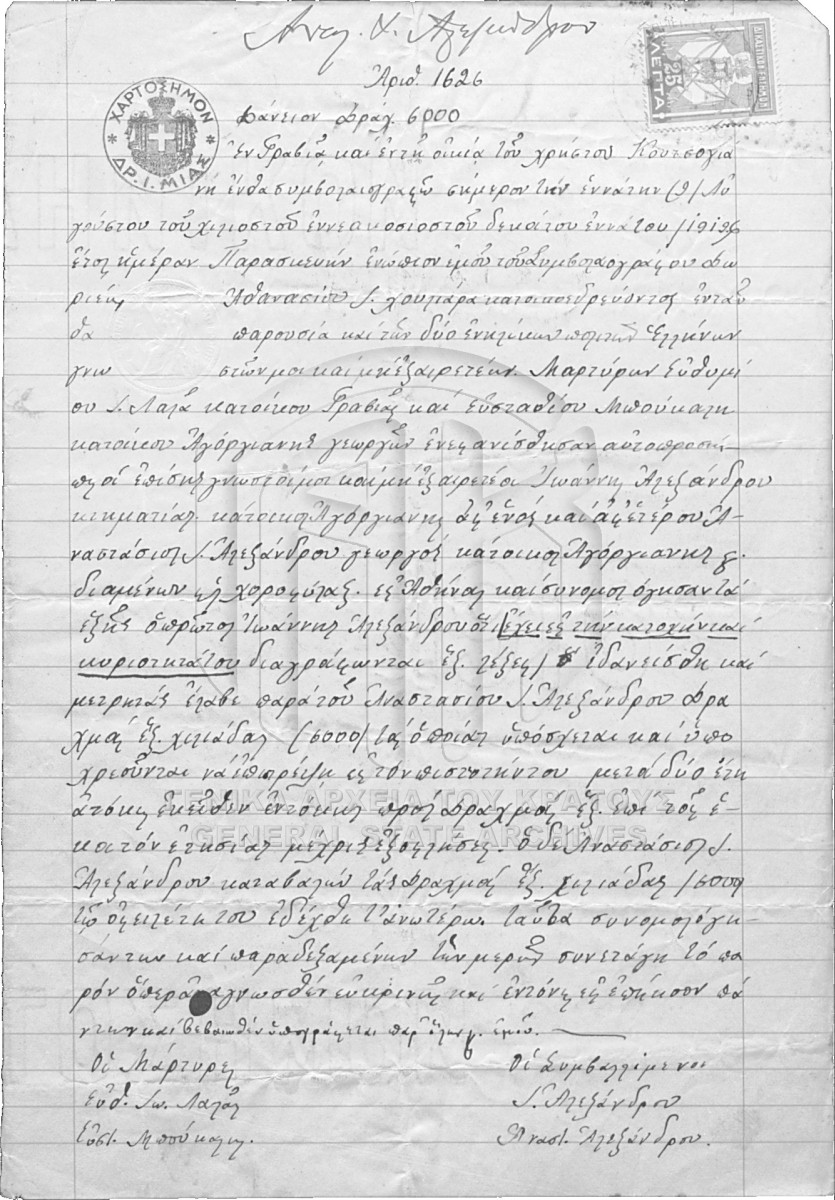 Ανασ. Ι. Αλεξανδρου
ΔΙΚΑΣΤΙΚΟΝ ΕΝΣΗΜΟΝ
25
ΛΕΠΤΑ
Ἀριθ. 1626
ΧΑΡΤΟΣΗΜΟΝ
ΔΡ. Ι. ΜΙΑΣ
Δάνειον Δραχ. 6000
Ἐν Γραβιᾷ καὶ ἐν τῇ οἰκίᾳ τοῦ Χρήστου Κουτσογια
νῆ ἔνθα συμβολαιογραφῶ σήμερον τὴν ἐννάτην (9) Αὐ
γούστου τοῦ χιλιοστοῦ ἐννεακοσιοστοῦ δεκάτου ἐννάτου /1919/
ἔτους ἡμέραν Παρασκευὴν ἐνώπιον ἐμοῦ τοῦ Συμβολαιογράφου Δω
ριέων Ἀθανασίου Ι. Χουμαρα κατοικοεδρεύοντος ἐνταῦ
θα παρουσίᾳ καὶ τῶν δύο ἐνηλίκων πολιτῶν Ἑλλήνων
γνω στῶν μοι καὶ μὴ ἐξαιρετέων. Μαρτύρων Εὐθυμί
ου Ι. Λαλᾶ κατοίκου Γραβιᾶς καὶ Εὐσταθίου Μπούκαλη
κατοίκου Ἀγόργιανης γεωργῶν ἐνεφανίσθησαν αὐτοπροσώ
πως οἱ ἐπίσης γνωστοί μοι καὶ μὴ ἐξαιρετέοι Ἰωάννης Ἀλεξάνδρου
κτηματίας κάτοικος Ἀγόργιανης ἀφ' ἑνὸς καὶ ἀφ' ἑτέρου Ἀ-
ναστάσιος Ι. Ἀλεξάνδρου γεωργὸς κάτοικος Ἀγόργιανης
διαμένων χοροφύλαξ εἰς Ἀθήνας καὶ συνομολόγησαν τὰ
ἑξῆς ὁ πρῶτος Ἰωάννης Ἀλεξάνδρου ὅτι /ἔχει εἰς τὴν κατοχὴν καὶ
κυριότητά του διαγράφωνται ἓξ λέξεις/ ἐδανείσθη καὶ
μετρητὰς ἔλαβε παρὰ τοῦ Ἀναστασίου Ι. Ἀλεξάνδρου δρα
χμὰς ἓξ χιλιάδας (6000) τὰς ὁποίας ὑπόσχεται καὶ ὑπο
χρεοῦνται νὰ ἐπιστρέψῃ εἰς τὸν πιστωτήν του μετὰ δύο ἔτη
ἀτόκως ἐκεῖθεν ἐντόκως πρὸς δραχμὰς ἓξ ἐπὶ τοῖς ἑ-
κατὸν ἐτησίως μέχρις ἐξοφλήσεως. ὁ δὲ Ἀναστάσιος Ι.
Ἀλεξάνδρου καταβαλὼν τὰς δραχμὰς ἓξ χιλιάδας /6000/
τῷ ὀφειλέτῃ του ἐδέχθη τ' ἀνωτέρω. ταῦτα συνομολογη-
σάντων καὶ παραδεξαμένων τῶν μερῶν συνετάγη τὸ πα
ρὸν ὅπερ ἀναγνωσθὲν εὐκρινῶς καὶ ἐντόνως εἰς ἐπήκοον πά
ντων καὶ βεβαιωθὲν ὑπογράφεται παρ' ὅλων κ. ἐμοῦ.
Οἱ Μάρτυρες
Εὐθ. Ιω. Λαλᾶς
Εὐστ. Μπούκαλης.
Οἱ Συμβαλλόμενοι
Ι. Ἀλεξάνδρου
Ἀναστ. Ἀλεξάνδρου.
ΓΕΝΙΚΑ ΑΡΧΕΙΑ ΤΟΥ ΚΡΑΤΟΥΣ
GENERAL STATE ARCHIVES